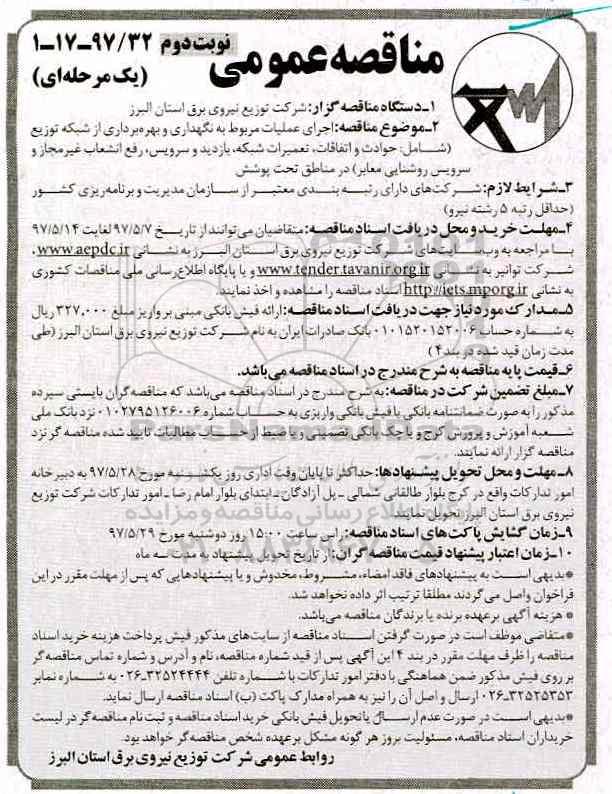 مناقصه عمومی
نوبت دوم ۹۷/۳۲-۱۷-۱
(یک مرحله‌ای)
۱ـ دستگاه مناقصه گزار: شرکت توزیع نیروی برق استان البرز
۲ـ موضوع مناقصه: اجرای عملیات مربوط به نگهداری و بهره‌برداری از شبکه توزیع
(شامل: حوادث و اتفاقات، تعمیرات شبکه، بازدید و سرویس، رفع انشعاب غیرمجاز و
سرویس روشنایی معابر) در مناطق تحت پوشش
۳ـ شرایط لازم: شرکت‌های دارای رتبه بندی معتبر از سازمان مدیریت و برنامه‌ریزی کشور
(حداقل رتبه ۵ رشته نیرو)
۴ـ مهلت خرید و محل دریافت اسناد مناقصه: متقاضیان می‌توانند از تاریخ ۹۷/۵/۷ لغایت ۹۷/۵/۱۴
با مراجعه به وب سایت‌های شرکت توزیع نیروی برق استان البرز به نشانی www.aepdc.ir،
شرکت توانیر به نشانی www.tender.tavanir.org.ir و یا پایگاه اطلاع‌رسانی ملی مناقصات کشوری
به نشانی http://iets.mporg.ir اسناد مناقصه را مشاهده و اخذ نمایند.
۵ـ مدارک مورد نیاز جهت دریافت اسناد مناقصه: ارائه فیش بانکی مبنی بر واریز مبلغ ۳۲۷،۰۰۰ ریال
به شماره حساب ۰۱۰۱۵۲۰۱۵۲۰۰۶ بانک صادرات ایران به نام شرکت توزیع نیروی برق استان البرز (طی
مدت زمان قید شده در بند ۴)
۶ـ قیمت پایه مناقصه به شرح مندرج در اسناد مناقصه می‌باشد.
۷ـ مبلغ تضمین شرکت در مناقصه: به شرح مندرج در اسناد مناقصه می‌باشد که مناقصه گران بایستی سپرده
مذکور را به صورت ضمانتنامه بانکی یا فیش بانکی واریزی به حساب شماره ۰۱۰۲۷۹۵۱۲۶۰۰۶ نزد بانک ملی
شعبه آموزش و پرورش کرج و یا چک بانکی تضمینی و یا ضبط از حساب مطالبات تایید شده مناقصه گر نزد
مناقصه گزار ارائه نمایند.
۸ـ مهلت و محل تحویل پیشنهادها: حداکثر تا پایان وقت اداری روز یکشنبه مورخ ۹۷/۵/۲۸ به دبیرخانه
امور تدارکات واقع در کرج بلوار طالقانی شمالی ـ پل آزادگان ـ ابتدای بلوار امام رضا ـ امور تدارکات شرکت توزیع
نیروی برق استان البرز تحویل نمایند.
۹ـ زمان گشایش پاکت‌های اسناد مناقصه: راس ساعت ۱۵:۰۰ روز دوشنبه مورخ ۹۷/۵/۲۹
۱۰ـ زمان اعتبار پیشنهاد قیمت مناقصه گران: از تاریخ تحویل پیشنهاد به مدت سه ماه
* بدیهی است به پیشنهادهای فاقد امضاء، مشروط، مخدوش و یا پیشنهادهایی که پس از مهلت مقرر در این
فراخوان واصل می‌گردند مطلقا ترتیب اثر داده نخواهد شد.
* هزینه آگهی برعهده برنده یا برندگان مناقصه می‌باشد.
* متقاضی موظف است در صورت گرفتن اسناد مناقصه از سایت‌های مذکور فیش پرداخت هزینه خرید اسناد
مناقصه را ظرف مهلت مقرر در بند ۴ این آگهی پس از قید شماره مناقصه، نام و آدرس و شماره تماس مناقصه گر
بر روی فیش مذکور ضمن هماهنگی با دفتر امور تدارکات با شماره تلفن ۳۲۵۲۴۴۴۴-۰۲۶ به شماره نمابر
۳۲۵۲۵۳۵۳-۰۲۶ ارسال و اصل آن را نیز به همراه مدارک پاکت (ب) اسناد مناقصه ارسال نماید.
* بدیهی است در صورت عدم ارسال یا تحویل فیش بانکی خرید اسناد مناقصه و ثبت نام مناقصه گر در لیست
خریداران اسناد مناقصه، مسئولیت بروز هر گونه مشکل بر عهده شخص مناقصه گر خواهد بود.
روابط عمومی شرکت توزیع نیروی برق استان البرز